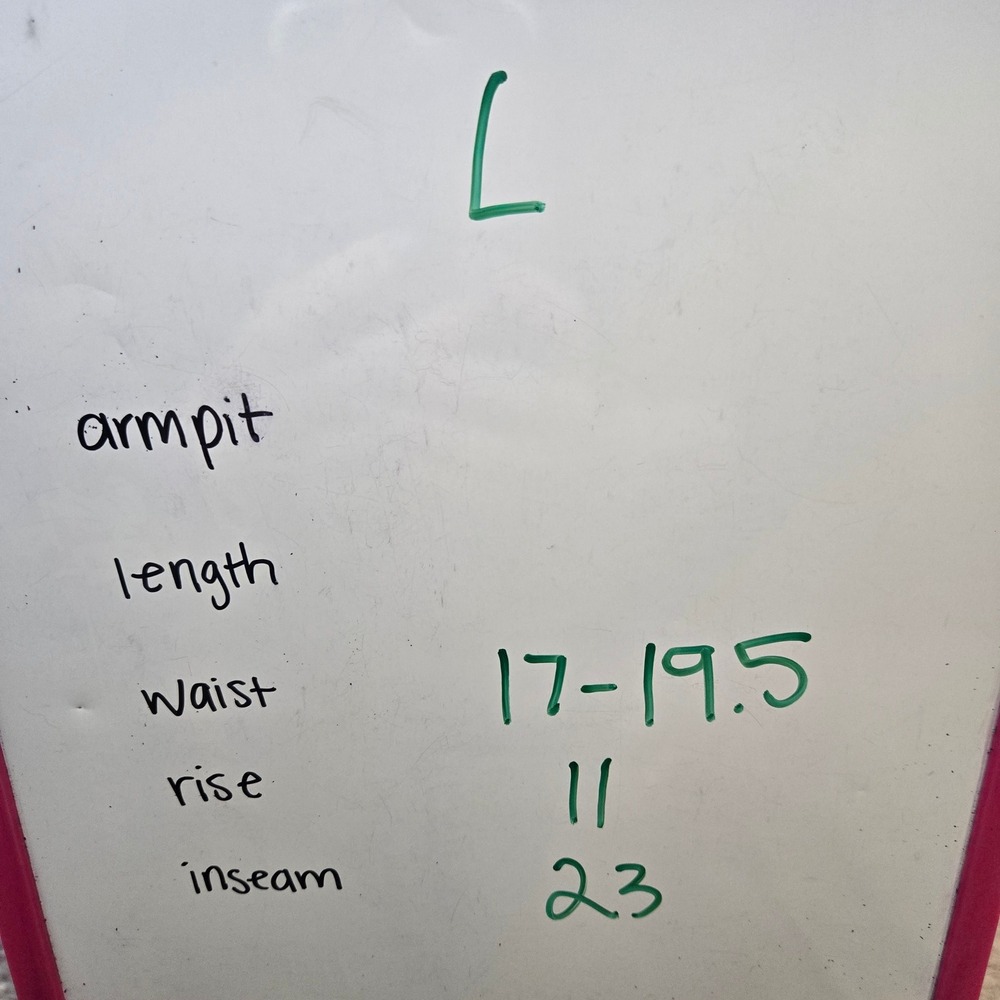 L
armpit
length
waist 17-19.5
rise 11
inseam 23